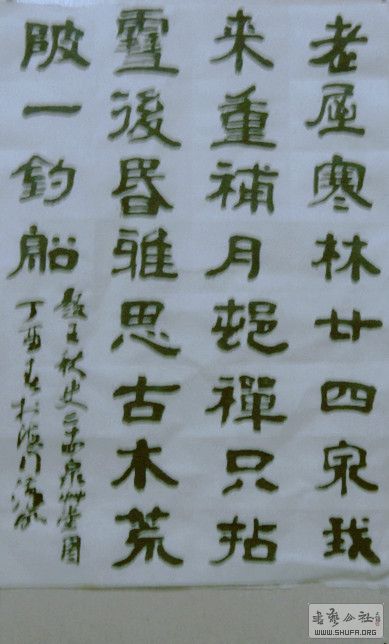 老屋寒林廿四泉我
来重補月邨禪只拈
雪後昏雅思古木荒
陂一釣船
題王秋史二十四泉艸堂图
丁酉春於海門
書藝公社
WWW.SHUFA.ORG